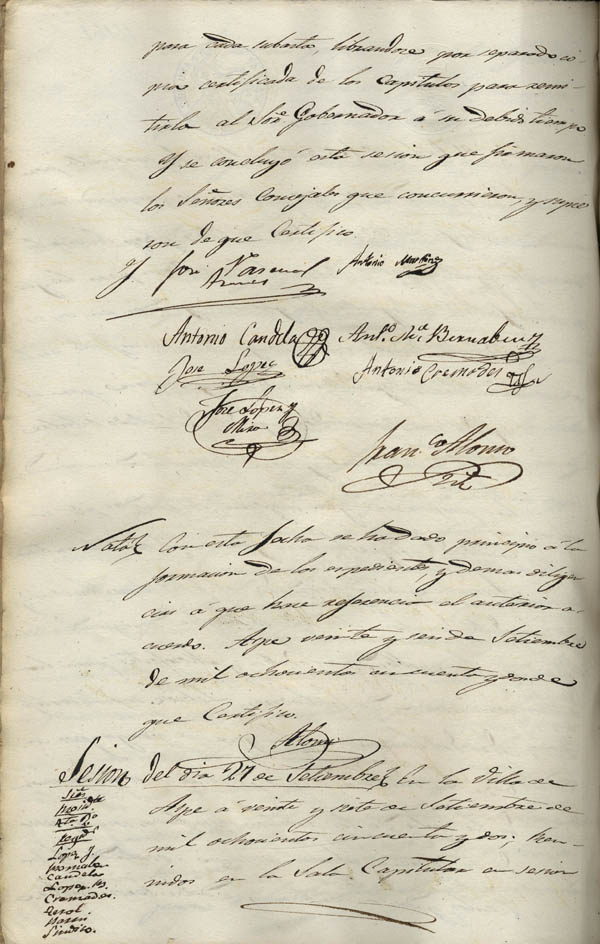 para cada subasta, librandose por separado co-
pia certificada de los Capitulos para remi-
tirla al Sor. Gobernador á su debido tiempo
Y se concluyó esta sesion que firmaron
los Señores Concejales que concurrieron, y supie-
ron de que Certifico.
José Pascual
Antonio Martinez
Antonio Candela
Anto. Ma. Bernabeu
José Lopez
Antonio Cremades
José Lopez y
Mira
Franco. Alonso
Nota
Con esta fecha se ha dado principio á la
formacion de los expedientes, y demas diligen
cias á que hace referencia el anterior a-
cuerdo. Aspe veinte y seis de Setiembre
de mil ochocientos cincuenta y dos de
que Certifico.
Alonso
Sesion del dia 27 de Setiembre
En la Villa de
Aspe á veinte y siete de Setiembre de
mil ochocientos cincuenta y dos; Reu-
nidos en la Sala Capitular en sesion
Señs.
Presidte.
Lopez
Candela
Lopez
Cremades
Sindico.